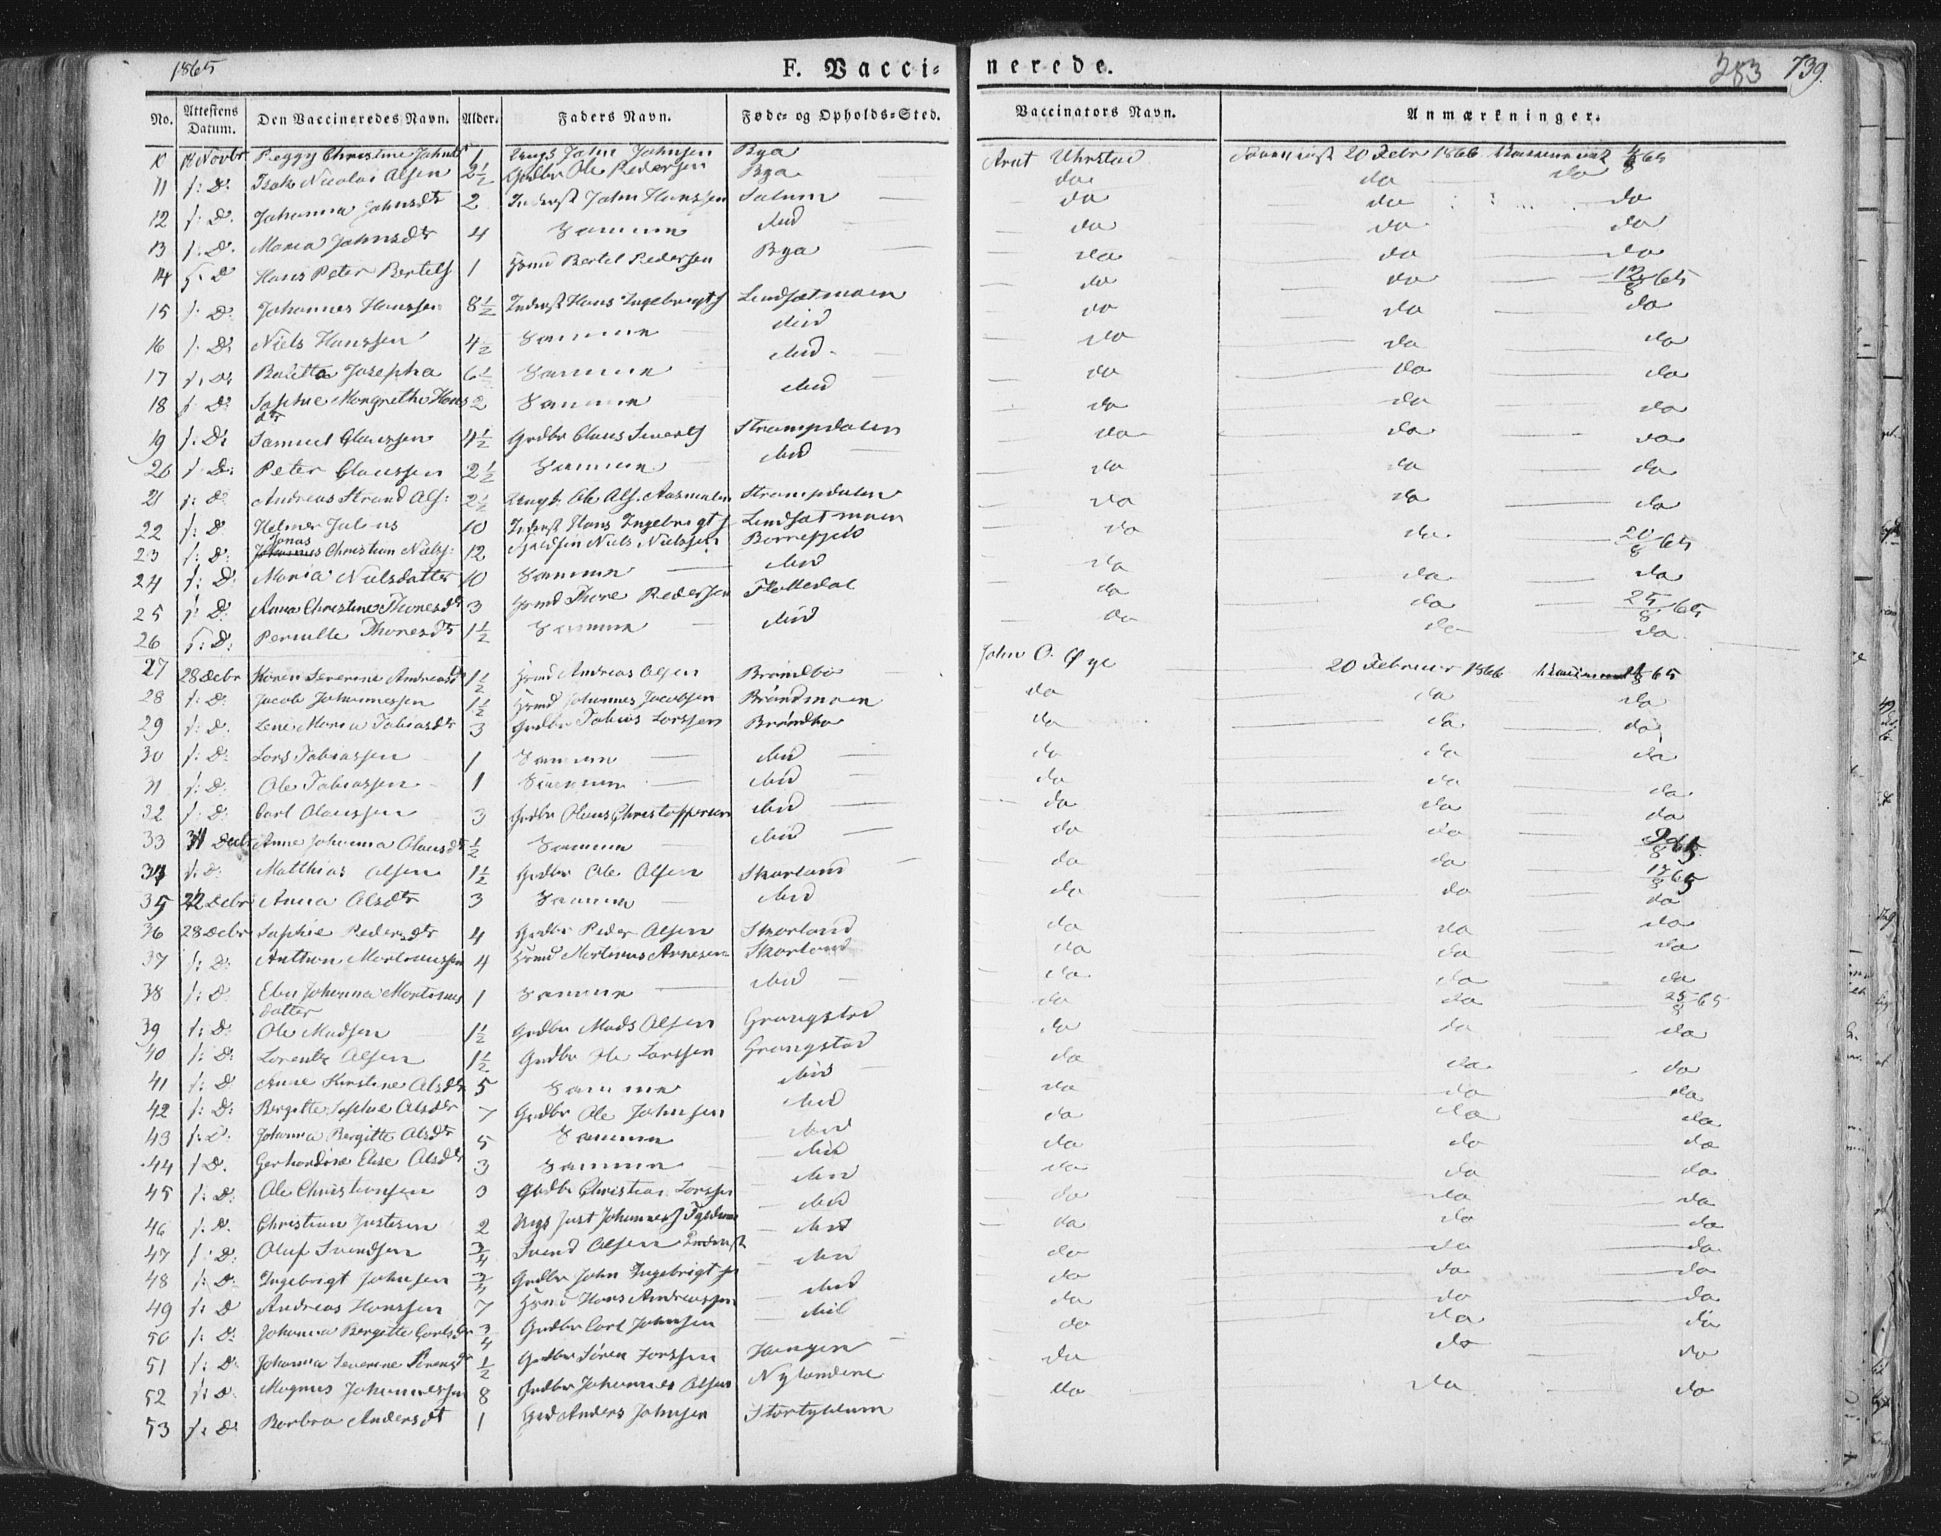 1865 F. Vaccinerede. 283 739.
No. Attestens Datum. Den Vaccineredes Navn. Alder. Faders Navn. Føde- og Opholds-Sted. Vaccinators Navn. Anmærkninger.
10 14 Novbr Peggy Christine 1 John Johnsen Bya Arnt 20 Febr 1866 65
11 s: D: Isak Nicolai Olsen 2½ Gdbr Ole Pedersen Bya do do do
12 s: D. Johanna Johnsdtr 2 John Hanssen Salum do do do
13 s: D. Maria Johnsdtr 4 Samme ibid do do do
14 s: D Hans Peter Bertels 1 Hmd Bertel Pedersen Bya do do do
15 s: D: Johannes Hanssen 8½ Inderst Hans Ingebrigts Lindsætmoen do do 12/8 65
16 s: D: Niels Hanssen 4½ Samme ibid do do do
17 s: D: Josepha 6½ Samme ibid do do do
18 s: D: Sophie Margrethe Hans dtr 2 Samme ibid do do do
19 s: D: Samuel Claussen 4½ Grdbr Claus Siverts Strompdalen do do do
20 s: D: Peter Claussen 2½ Samme ibid do do do
21 s: D. Andreas Strand Ols: 2½ Ungk. Ole Ols. Strompdalen do do do
22 s: D Helmer Julius 10 Inderst Hans Ingebrigts Lindsætmoen do do do
23 s: D: Jonas Christian Niels: 12 Niels Nielssen Borrefjeld do do 20/8 65
24 s: D: Maria Nielsdatter 10 Samme ibid do do do
25 s: D. Anna Christine Thoresdtr 3 Hmd Thore Pedersen Flottedal do do 25/8 65
26 s: D: Pernille Thoresdtr 1½ Samme ibid do do do
27 28 Decbr Karen Severine Andreasd 1½ Hmd Andreas Olsen Brøndbo John O. Øye 20 Februar 1866 65
28 s: D: Jacob Johannessen 1½ Hmd Johannes Jacobsen Brøndmoen do do do
29 s: D: Lene Maria Tobiasdtr 3 Grdbr Tobias Larssen Brøndbo do do do
30 s: D: Lars Tobiassen 1 Samme ibid do do do
31 s: D: Ole Tobiassen 1 Samme ibid do do do
32 s: D: Carl Olaussen 3 Grdbr Olaus Christoffersen ibid do do do
33 31 Decbr Anne Johanna Olausdtr ½ Samme ibid do do 65
34 s: D: Matthias Olsen 1½ Grdbr Ole Olsen Skarland do do 65
35 22 Debr Anna Olsdtr 3 Samme ibid do do do
36 28 Debr Sophie Pedersdtr 4 Grdbr Peder Olsen Skarland do do do
37 s: D: Anthon Martinussen 4 Hmd Martinus Arnesen Skarland do do do
38 s: D. Johanna Martinus datter 1 Samme ibid do do do
39 s: D: Ole Madsen 1½ Grdbr Mads Olsen Grangstad do do 25/8 65
40 s: D: Lorents Olsen 1½ Grdbr Ole Larssen Grangstad do do do
41 s: D. Anne Kirstine Olsdtr 5 Samme ibid do do do
42 s: D: Bergitte Sophie Olsdtr 7 Grdbr Ole Johnsen ibid do do do
43 s: D: Johanna Bergitte Olsdtr 5 Samme ibid do do do
44 s D. Gerhardine Elise Olsdtr 3 Samme ibid do do do
45 s: D: Ole Christiansen 3 Grdbr Christian Larssen ibid do do do
46 s: D. Christian Justesen 2 Just Johannes ibid do do do
47 s: D: Oluf Svendsen ¾ Svend Olsen Inderst ibid do do do
48 s: D: Ingebrigt Johnsen ¾ Grdbr John Ingebrigtsen ibid do do do
49 s: D Andreas Hanssen 7 Hmd Hans Andreassen ibid do do do
50 s: D: Johanna Bergitte Carlsdtr ¾ Grdbr Carl Johnsen ibid do do do
51 s: D: Johanna Severine Sørensdtr ½ Grdbr Søren Larssen do do do
52 s: D. Magnus Johannessen 8 Grdbr Johannes Olsen Nylandene do do do
53 s: D: Berbra Andersdt 1 Grd Anders Johnsen do do do